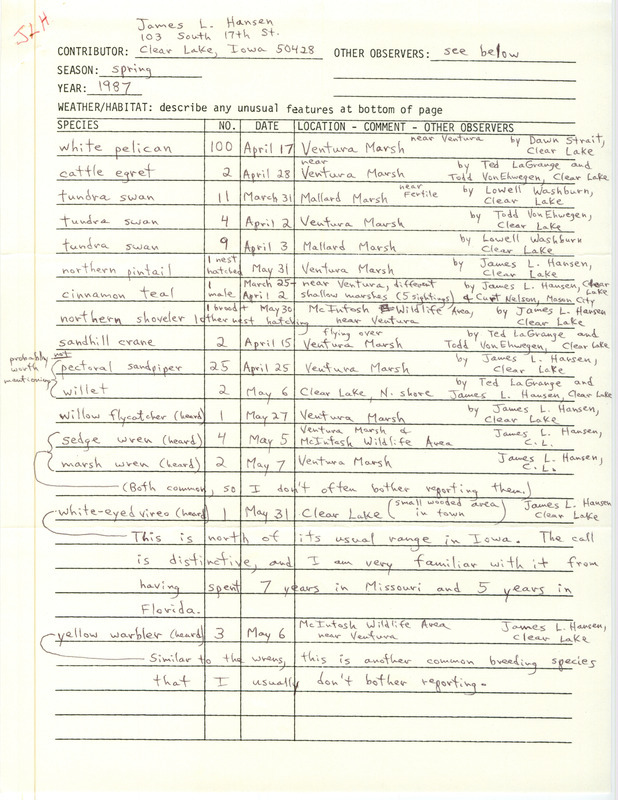 JLH
James L. Hansen
103 South 17th St.
CONTRIBUTOR: Clear Lake, Iowa 50428 OTHER OBSERVERS: see below
SEASON: spring
YEAR: 1987
WEATHER/HABITAT: describe any unusual features at bottom of page
SPECIES NO. DATE LOCATION - COMMENT - OTHER OBSERVERS
white pelican 100 April 17 Ventura Marsh near Ventura by Dawn Strait, Clear Lake
cattle egret 2 April 28 near Ventura Marsh by Ted LaGrange and Todd VonEhwegen, Clear Lake
tundra swan 11 March 31 Mallard Marsh near Fertile by Lowell Washburn, Clear Lake
tundra swan 4 April 2 Ventura Marsh by Todd VonEhwegen, Clear Lake
tundra swan 9 April 3 Mallard Marsh by Lowell Washburn Clear Lake
northern pintail 1 nest hatched May 31 Ventura Marsh by James L. Hansen, Clear Lake
cinnamon teal 1 male March 25- April 2 near Ventura, different shallow marshes (5 sightings) by James L. Hansen, Clear Lake & Curt Nelson, Mason City
northern shoveler 1 brood + 1 other nest hatching May 30 McIntosh Wildlife Area, near Ventura by James L. Hansen Clear Lake
sandhill crane 2 April 15 flying over Ventura Marsh by Ted LaGrange and Todd VonEhwegen, Clear Lake
probably not worth mentioning
pectoral sandpiper 25 April 25 Ventura Marsh by James L. Hansen, Clear Lake
willet 2 May 6 Clear Lake, N. shore by Ted LaGrange and James L. Hansen, Clear Lake
willow flycatcher (heard) 1 May 27 Ventura Marsh by James L. Hansen, Clear Lake
sedge wren (heard) 4 May 5 Ventura Marsh & McIntosh Wildlife Area James L. Hansen, C.L.
marsh wren (heard) 2 May 7 Ventura Marsh James L. Hansen, C.L.
(Both common, so I don't often bother reporting them.)
white-eyed vireo (heard) 1 May 31 Clear Lake (small wooded area in town) James L. Hansen Clear Lake
This is north of its usual range in Iowa. The call
is distinctive, and I am very familiar with it from
having spent 7 years in Missouri and 5 years in
Florida.
yellow warbler (heard) 3 May 6 McIntosh Wildlife Area near Ventura James L. Hansen, Clear Lake
Similar to the wrens, this is another common breeding species
that I usually don't bother reporting.